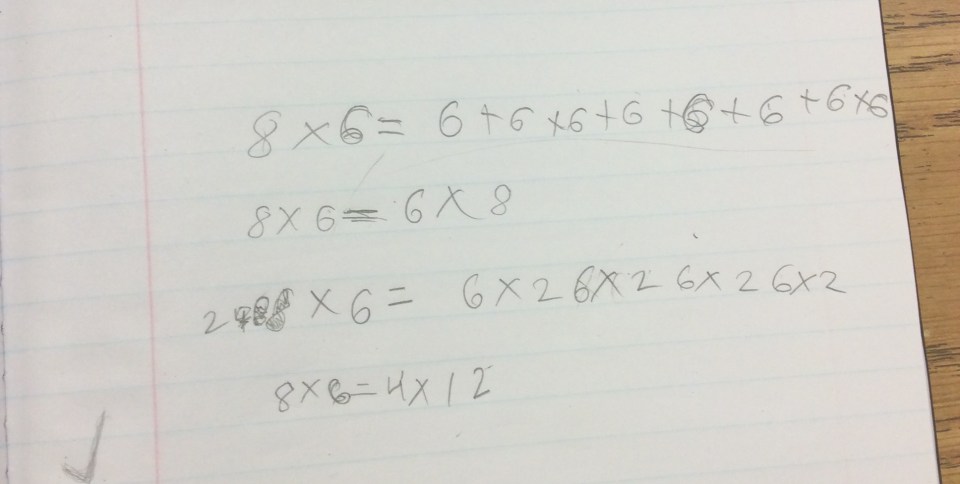 8 × 6 = 6 + 6 × 6 + 6 + 6 + 6 + 6 × 6
8 × 6 = 6 × 8
× 6 = 6 × 2 6 × 2 6 × 2 6 × 2
8 × 6 = 4 × 12